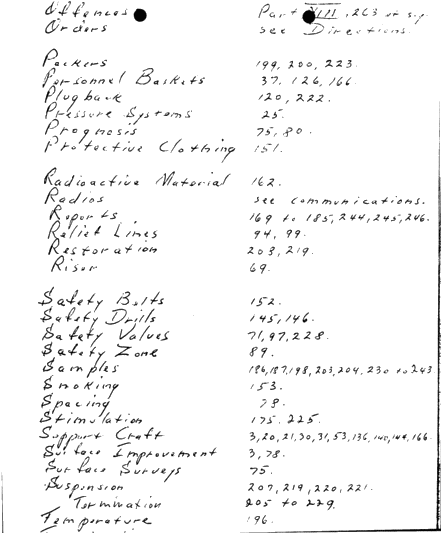 Offences Part VIII, 263 et seq.
Orders see Directions.
Packers 199, 200, 223.
Personnel Baskets 37, 126, 166.
Plugback 120, 222.
Pressure Systems 25.
Prognosis 75, 80.
Protective Clothing 151.
Radioactive Material 162.
Radios see communications.
Reports 169 to 185, 244, 245, 246.
Relief Lines 94, 99.
Restoration 203, 219.
Riser 69.
Safety Belts 152.
Safety Drills 145, 146.
Safety Valves 71, 97, 228.
Safety Zone 89.
Samples 186, 187, 198, 203, 204, 230 to 243
Smoking 153.
Spacing 78.
Stimulation 175, 225.
Support Craft 3, 20, 21, 30, 31, 53, 136, 140, 144, 166.
Surface Improvement 3, 78.
Surface Surveys 75.
Suspension 207, 219, 220, 221.
Termination 205 to 229.
Temperature 196.